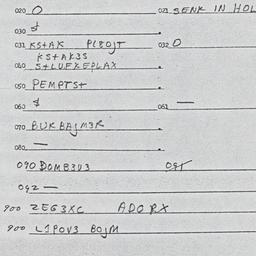 020 O 021 SENK IN HOL
030 $
031 KS+AK PLBOJT 032 O
KS+AK3S
040 S+LUFXEPLAX
050 PEMPTS+
060 $ 061 —
070 BUKBAJM3R
080 —
090 DOMB3V3 091
092 —
900 ZEG3XC ADORX
900 LIPOV3 BOJM